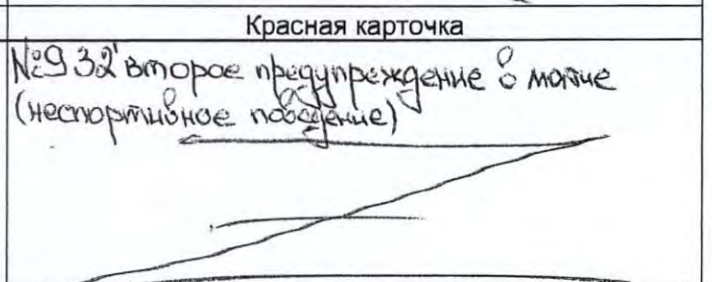 Красная карточка
№9 32' второе предупреждение в матче
(неспортивное поведение)